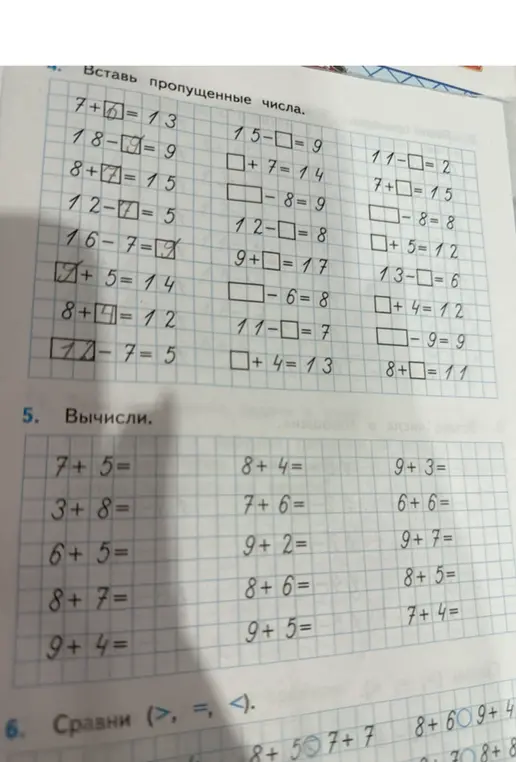 4. Вставь пропущенные числа.
7+6=13
18-9=9
8+7=15
12-7=5
16-7=9
9+5=14
8+4=12
12-7=5
15-□=9
□+7=14
□-8=9
12-□=8
9+□=17
□-6=8
11-□=7
□+4=13
11-□=2
7+□=15
□-8=8
□+5=12
13-□=6
□+4=12
□-9=9
8+□=11
5. Вычисли.
7+5=
3+8=
6+5=
8+7=
9+4=
8+4=
7+6=
9+2=
8+6=
9+5=
9+3=
6+6=
9+7=
8+5=
7+4=
6. Сравни (>, =, <).
8+5○7+7
8+6○9+4